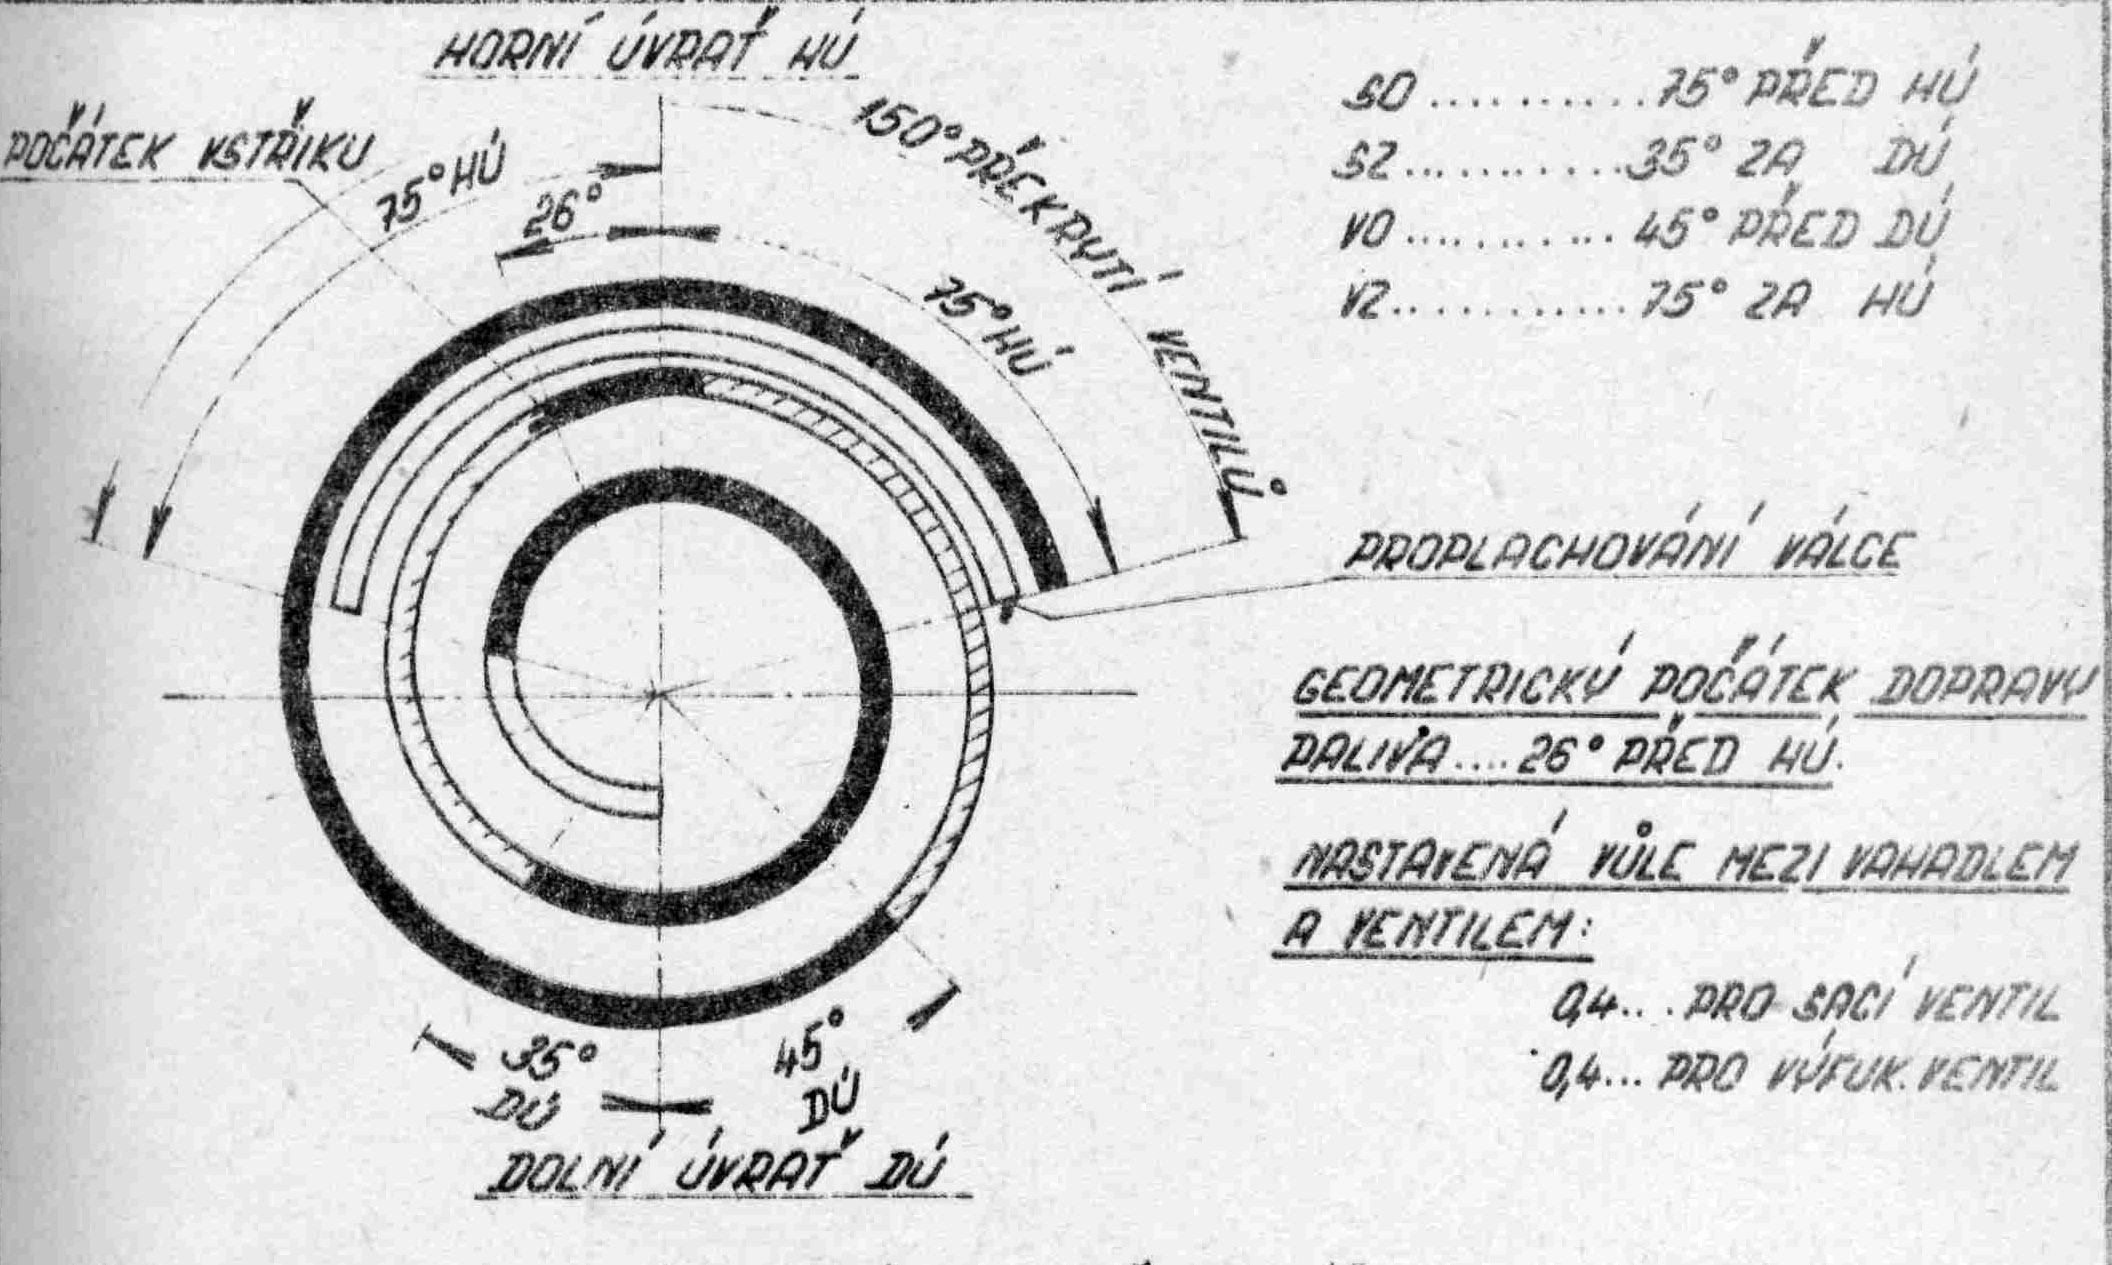 HORNÍ ÚVRAŤ HÚ
POČÁTEK VSTŘIKU
75° HÚ
26°
150° PŘEKRYTÍ VENTILŮ
75° HÚ
35°
DÚ
45°
DÚ
DOLNÍ ÚVRAŤ DÚ
SO ........... 75° PŘED HÚ
SZ ........... 35° ZA DÚ
VO ........... 45° PŘED DÚ
VZ ........... 75° ZA HÚ
PROPLACHOVÁNÍ VÁLCE
GEOMETRICKÝ POČÁTEK DOPRAVY
PALIVA .... 26° PŘED HÚ.
NASTAVENÁ VŮLE MEZI VAHADLEM
A VENTILEM:
0,4... PRO SACÍ VENTIL
0,4... PRO VÝFUK. VENTIL